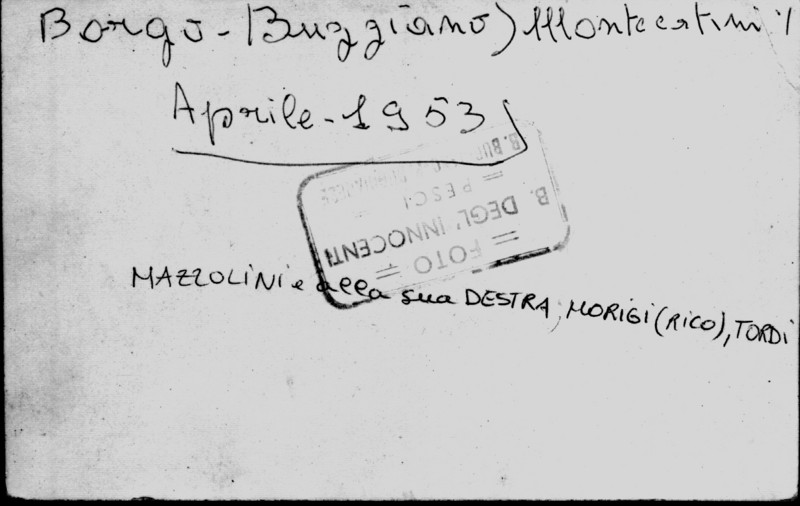 Borgo-Buggiano) Montecatini
Aprile-1953
= FOTO =
B. DEGL' INNOCENTI
= PESCI
B. BU
MAZZOLINI e alla sua DESTRA, MORIGI (RICO), TORDI